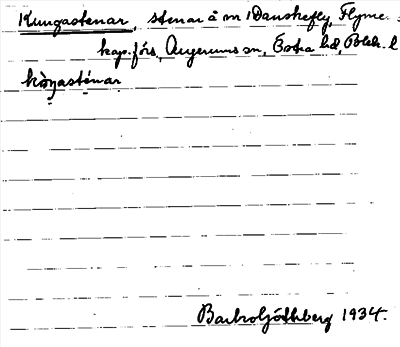 Kungastenar, stenar å m 1 Danskefly, Flyme
kap. förs., Augerums sn, Östra hd, Blek. l
kòŋasténar
Barbro Götlberg 1934.